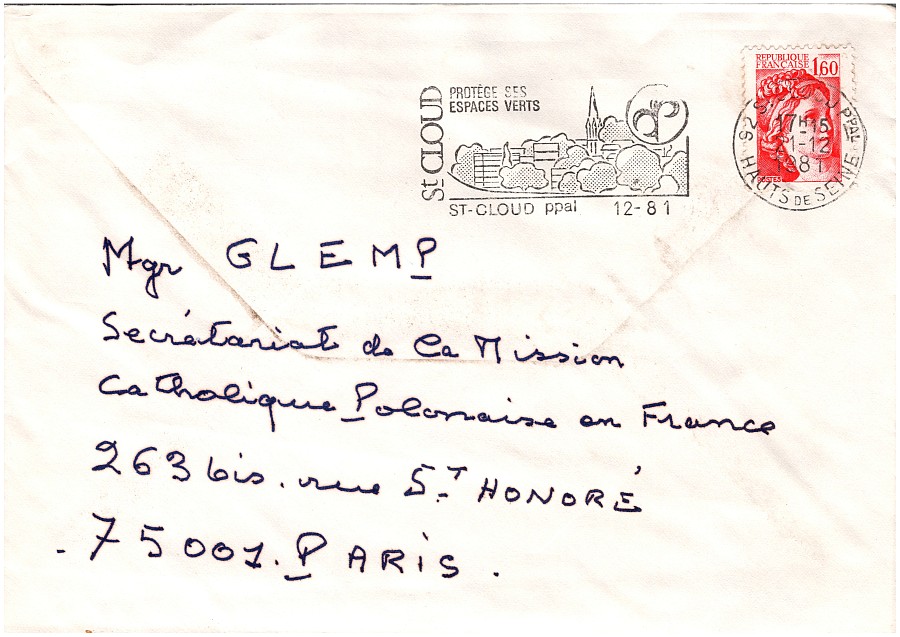 St CLOUD
PROTÈGE SES
ESPACES VERTS
ST-CLOUD ppal 12-81
RÉPUBLIQUE
FRANÇAISE 1,60
POSTES
92 ST PPAL
17H15
21-12
1981
HAUTS DE SEINE
Mgr GLEMP
Secrétariat de la Mission
Catholique Polonaise en France
263 bis. rue ST HONORÉ
. 75001. PARIS .